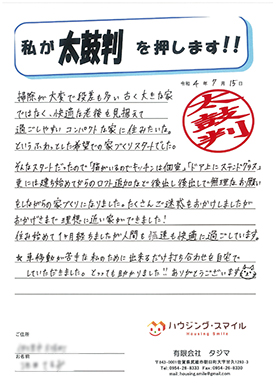 私が 太鼓判 を押します!!
令和 4年 9月 15日
太鼓判
掃除が大変で段差も多い古く大きな家
ではなく、快適な老後も見据えて
過ごしやすいコンパクトな家に住みたいな。
というふわっとした希望での家づくりスタートでした。
そんなスタートだったので「猫がいるのでキッチンは個室」「ドア上にステンドグラス」
更には建ち始めてからのロフト追加などで後出し後出しで無理なお願い
をしながらの家づくりになりました。たくさんご迷惑もおかけしましたが
おかげさまで理想に近い家ができました!
住み始めて1ヶ月経ちましたが人間も猫達も快適に過ごしています。
★車移動が苦手な私のために出来るだけ打ち合わせも自宅で
していただきました。とっても助かりました!!ありがとうございます
ご住所
お名前
ハウジング・スマイル
Housing Smile
有限会社 タジマ